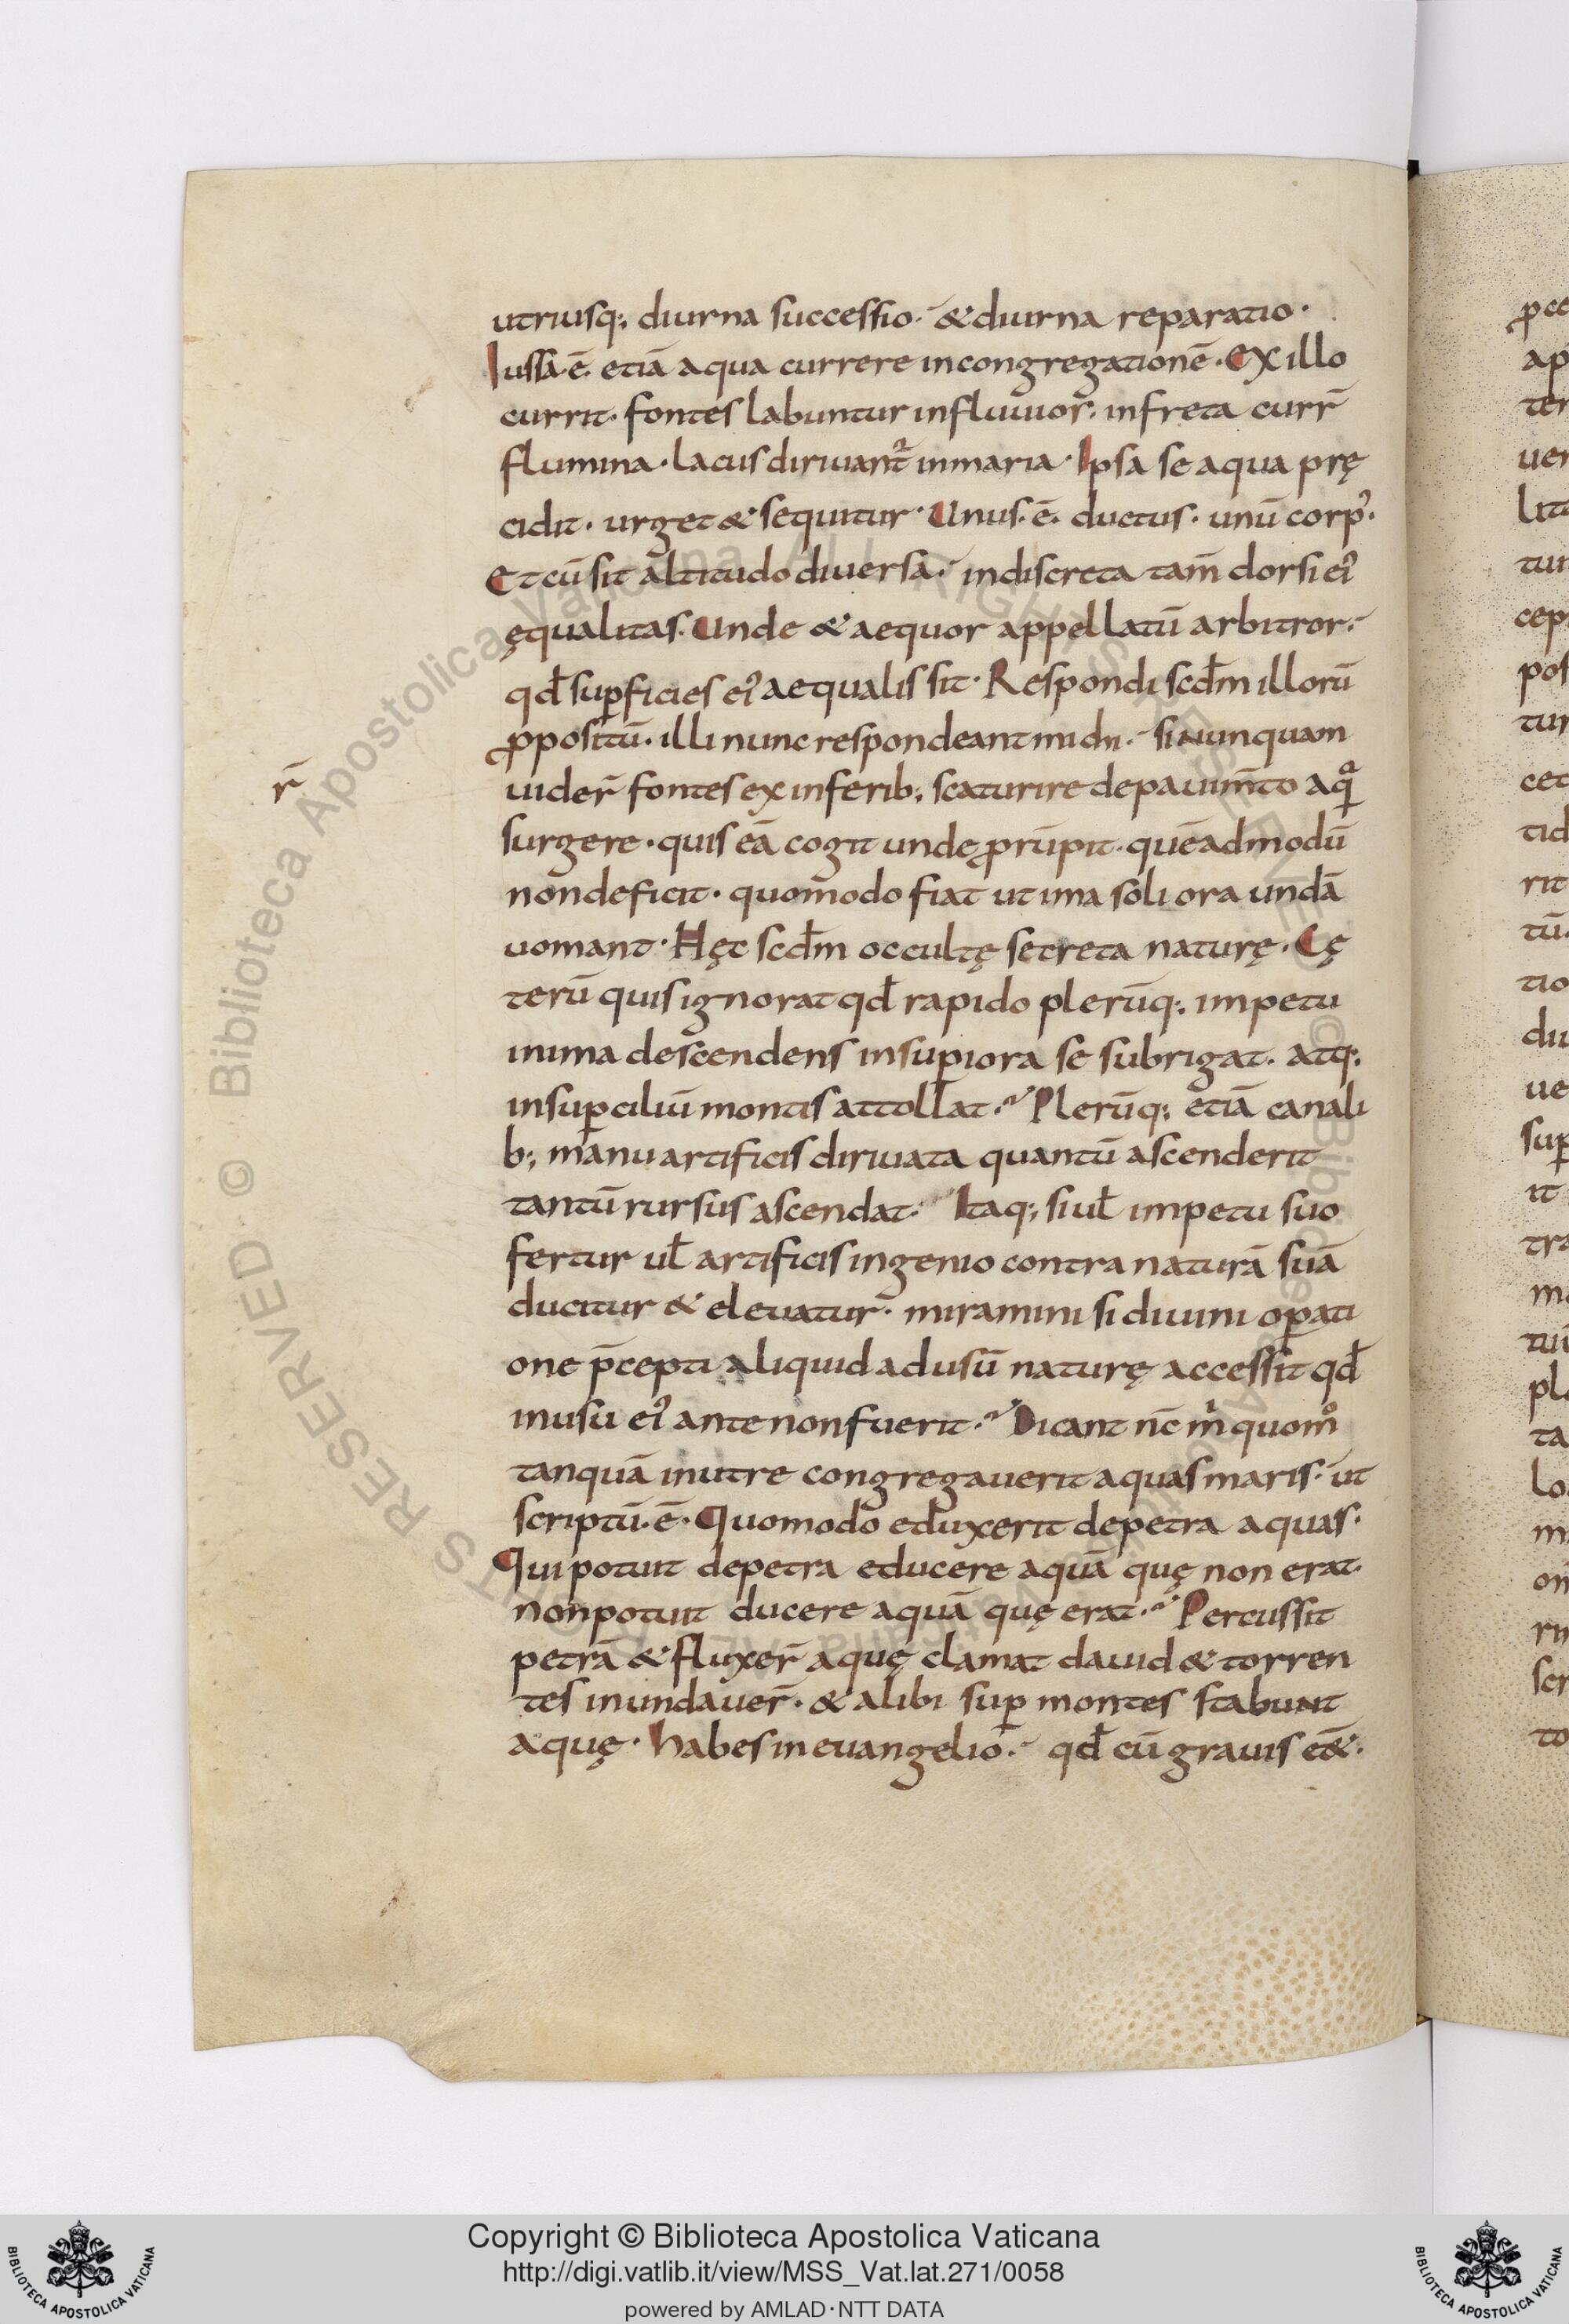 utriusq; diurna successio· & diurna reparatio·
Iussa·ē· etiā aqua currere in congregationē· Ex illo
currit· fontes labuntur in fluuuior; in freta curr̄
flumina· lacus diriuant᷑ in maria· Ipsa se aqua prę
cidit· urget & sequitur· Unus·ē· ductus· unū corpꝰ·
Et cū sit altitudo diuersa· indiscreta tam̄ dorsi eiꝰ
ęqualitas· Unde & aequor appellatū arbitror·
qđ suꝑficies eiꝰ aequalis sit· Respondi scđm illorū
ꝓpositū· illi nunc respondeant midn· si nunquam
r̄
uider̄ fontes ex inferib; scaturire de pauim̄to aqͣ
surgere· quis eā cogit unde ꝓrūpit· quēadmodū
non deficit· quomodo fiat ut ima soli ora undā
uomant· Hęc scđm occultę secreta naturę· Cę
terū quis ignorat qđ rapido plerūq; impetu
in ima descendens in suꝑiora se subrigat· atq;
in suꝑciliū montis attollat· Plerūq; etiā canali
b; manu artificis diriuata quantū ascenderit
tantū rursus ascendat· Itaq; si uƚ impetu suo
fertur uƚ artificis ingenio contra naturā suā
ducitur & eleuatur· miramini si diuini oꝑati
one p̄cepti aliquid ad usū naturę accessit qđ
in usu eiꝰ ante non fuerit· Dicant nc̄ mͥ quomͦ
tanquā in utre congregauerit aquas maris· ut
scriptū·ē· Quomodo eduxerit de petra aquas·
Qui potuit de petra educere aquā quę non erat·
non potuit ducere aquā quę erat· Percussit
petrā & fluxer̄ aquę clamat dauid & torren
tes inundauer̄· & alibi suꝑ montes stabunt
aquę· habes in euangelio· qđ cū grauis eēt·
Copyright © Biblioteca Apostolica Vaticana
http://digi.vatlib.it/view/MSS_Vat.lat.271/0058
powered by AMLAD·NTT DATA